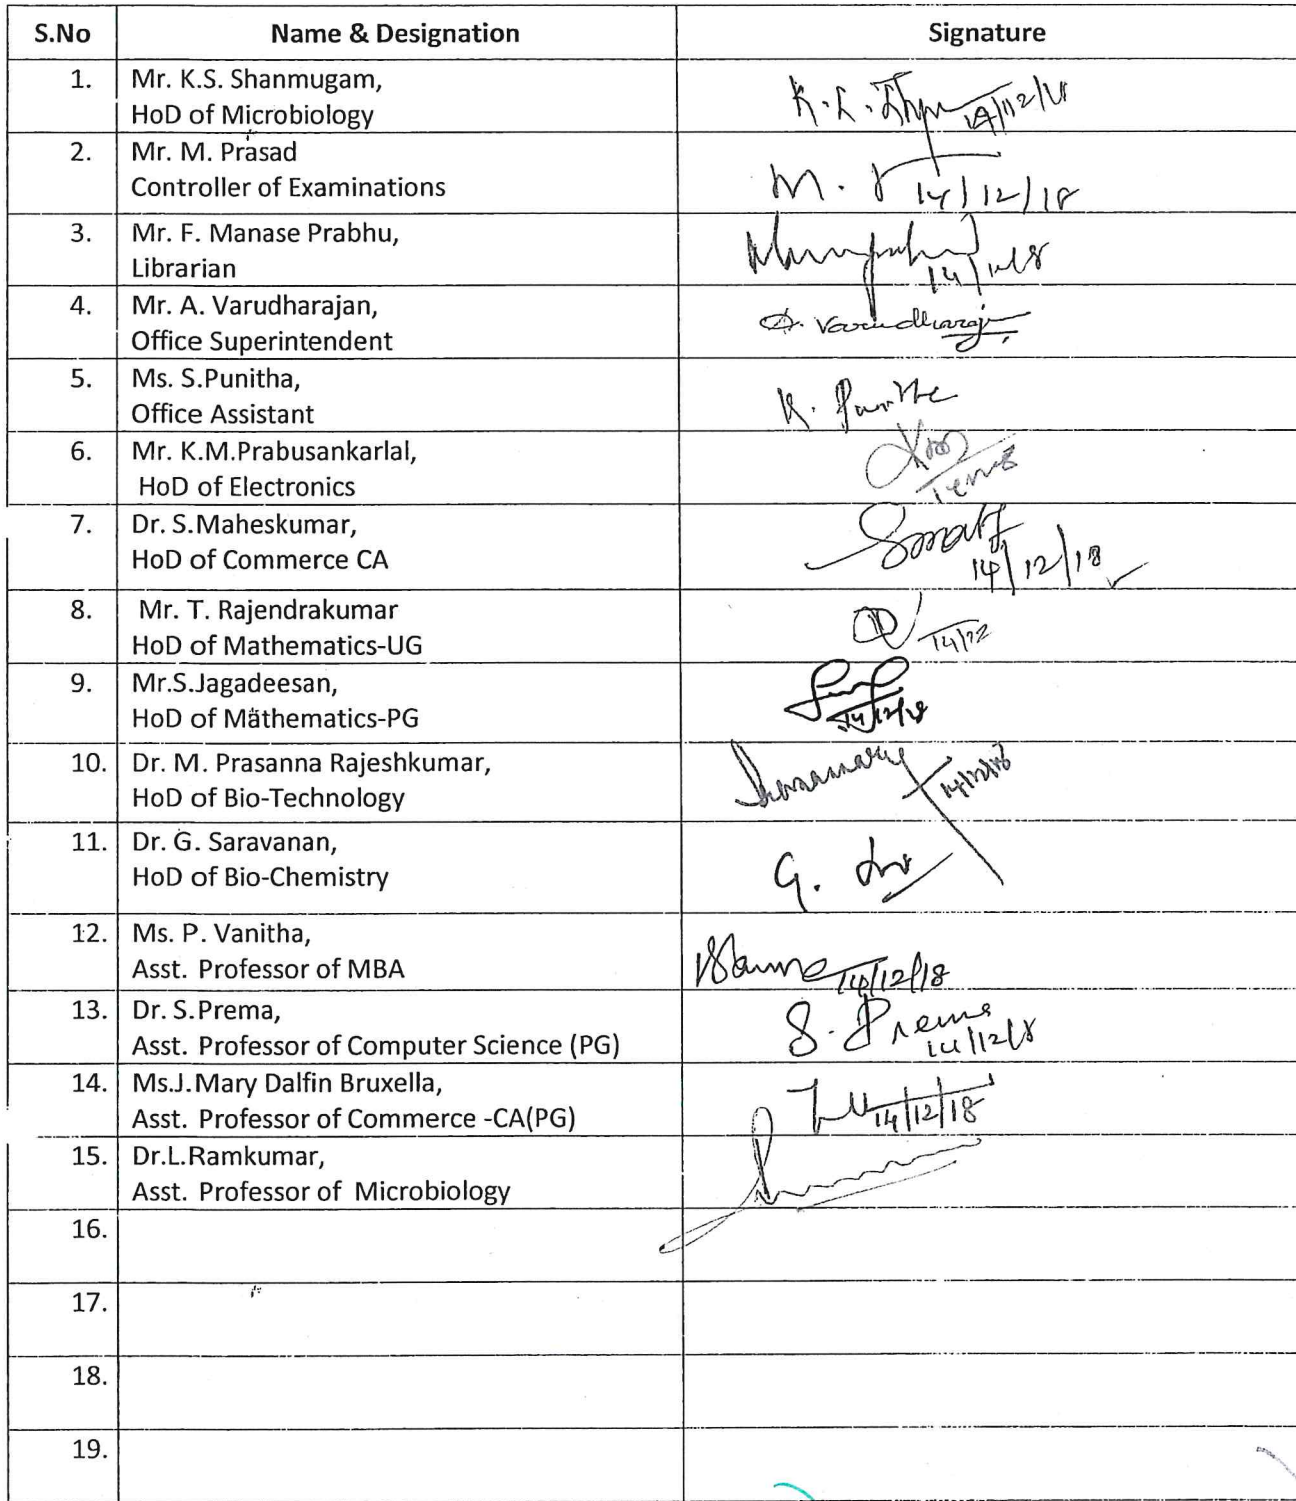 S.No Name & Designation Signature
1. Mr. K.S. Shanmugam,
HoD of Microbiology
2. Mr. M. Prasad
Controller of Examinations
M. 14/12/18
3. Mr. F. Manase Prabhu,
Librarian
4. Mr. A. Varudharajan,
Office Superintendent
A. Varudharaj
5. Ms. S.Punitha,
Office Assistant
6. Mr. K.M.Prabusankarlal,
HoD of Electronics
7. Dr. S.Maheskumar,
HoD of Commerce CA
14/12/18
8. Mr. T. Rajendrakumar
HoD of Mathematics-UG
14/12
9. Mr.S.Jagadeesan,
HoD of Mathematics-PG
14/12/18
10. Dr. M. Prasanna Rajeshkumar,
HoD of Bio-Technology
14/12/18
11. Dr. G. Saravanan,
HoD of Bio-Chemistry
G.
12. Ms. P. Vanitha,
Asst. Professor of MBA
14/12/18
13. Dr. S.Prema,
Asst. Professor of Computer Science (PG)
S. Prema
14/12/18
14. Ms.J.Mary Dalfin Bruxella,
Asst. Professor of Commerce -CA(PG)
14/12/18
15. Dr.L.Ramkumar,
Asst. Professor of Microbiology
16.
17.
18.
19.